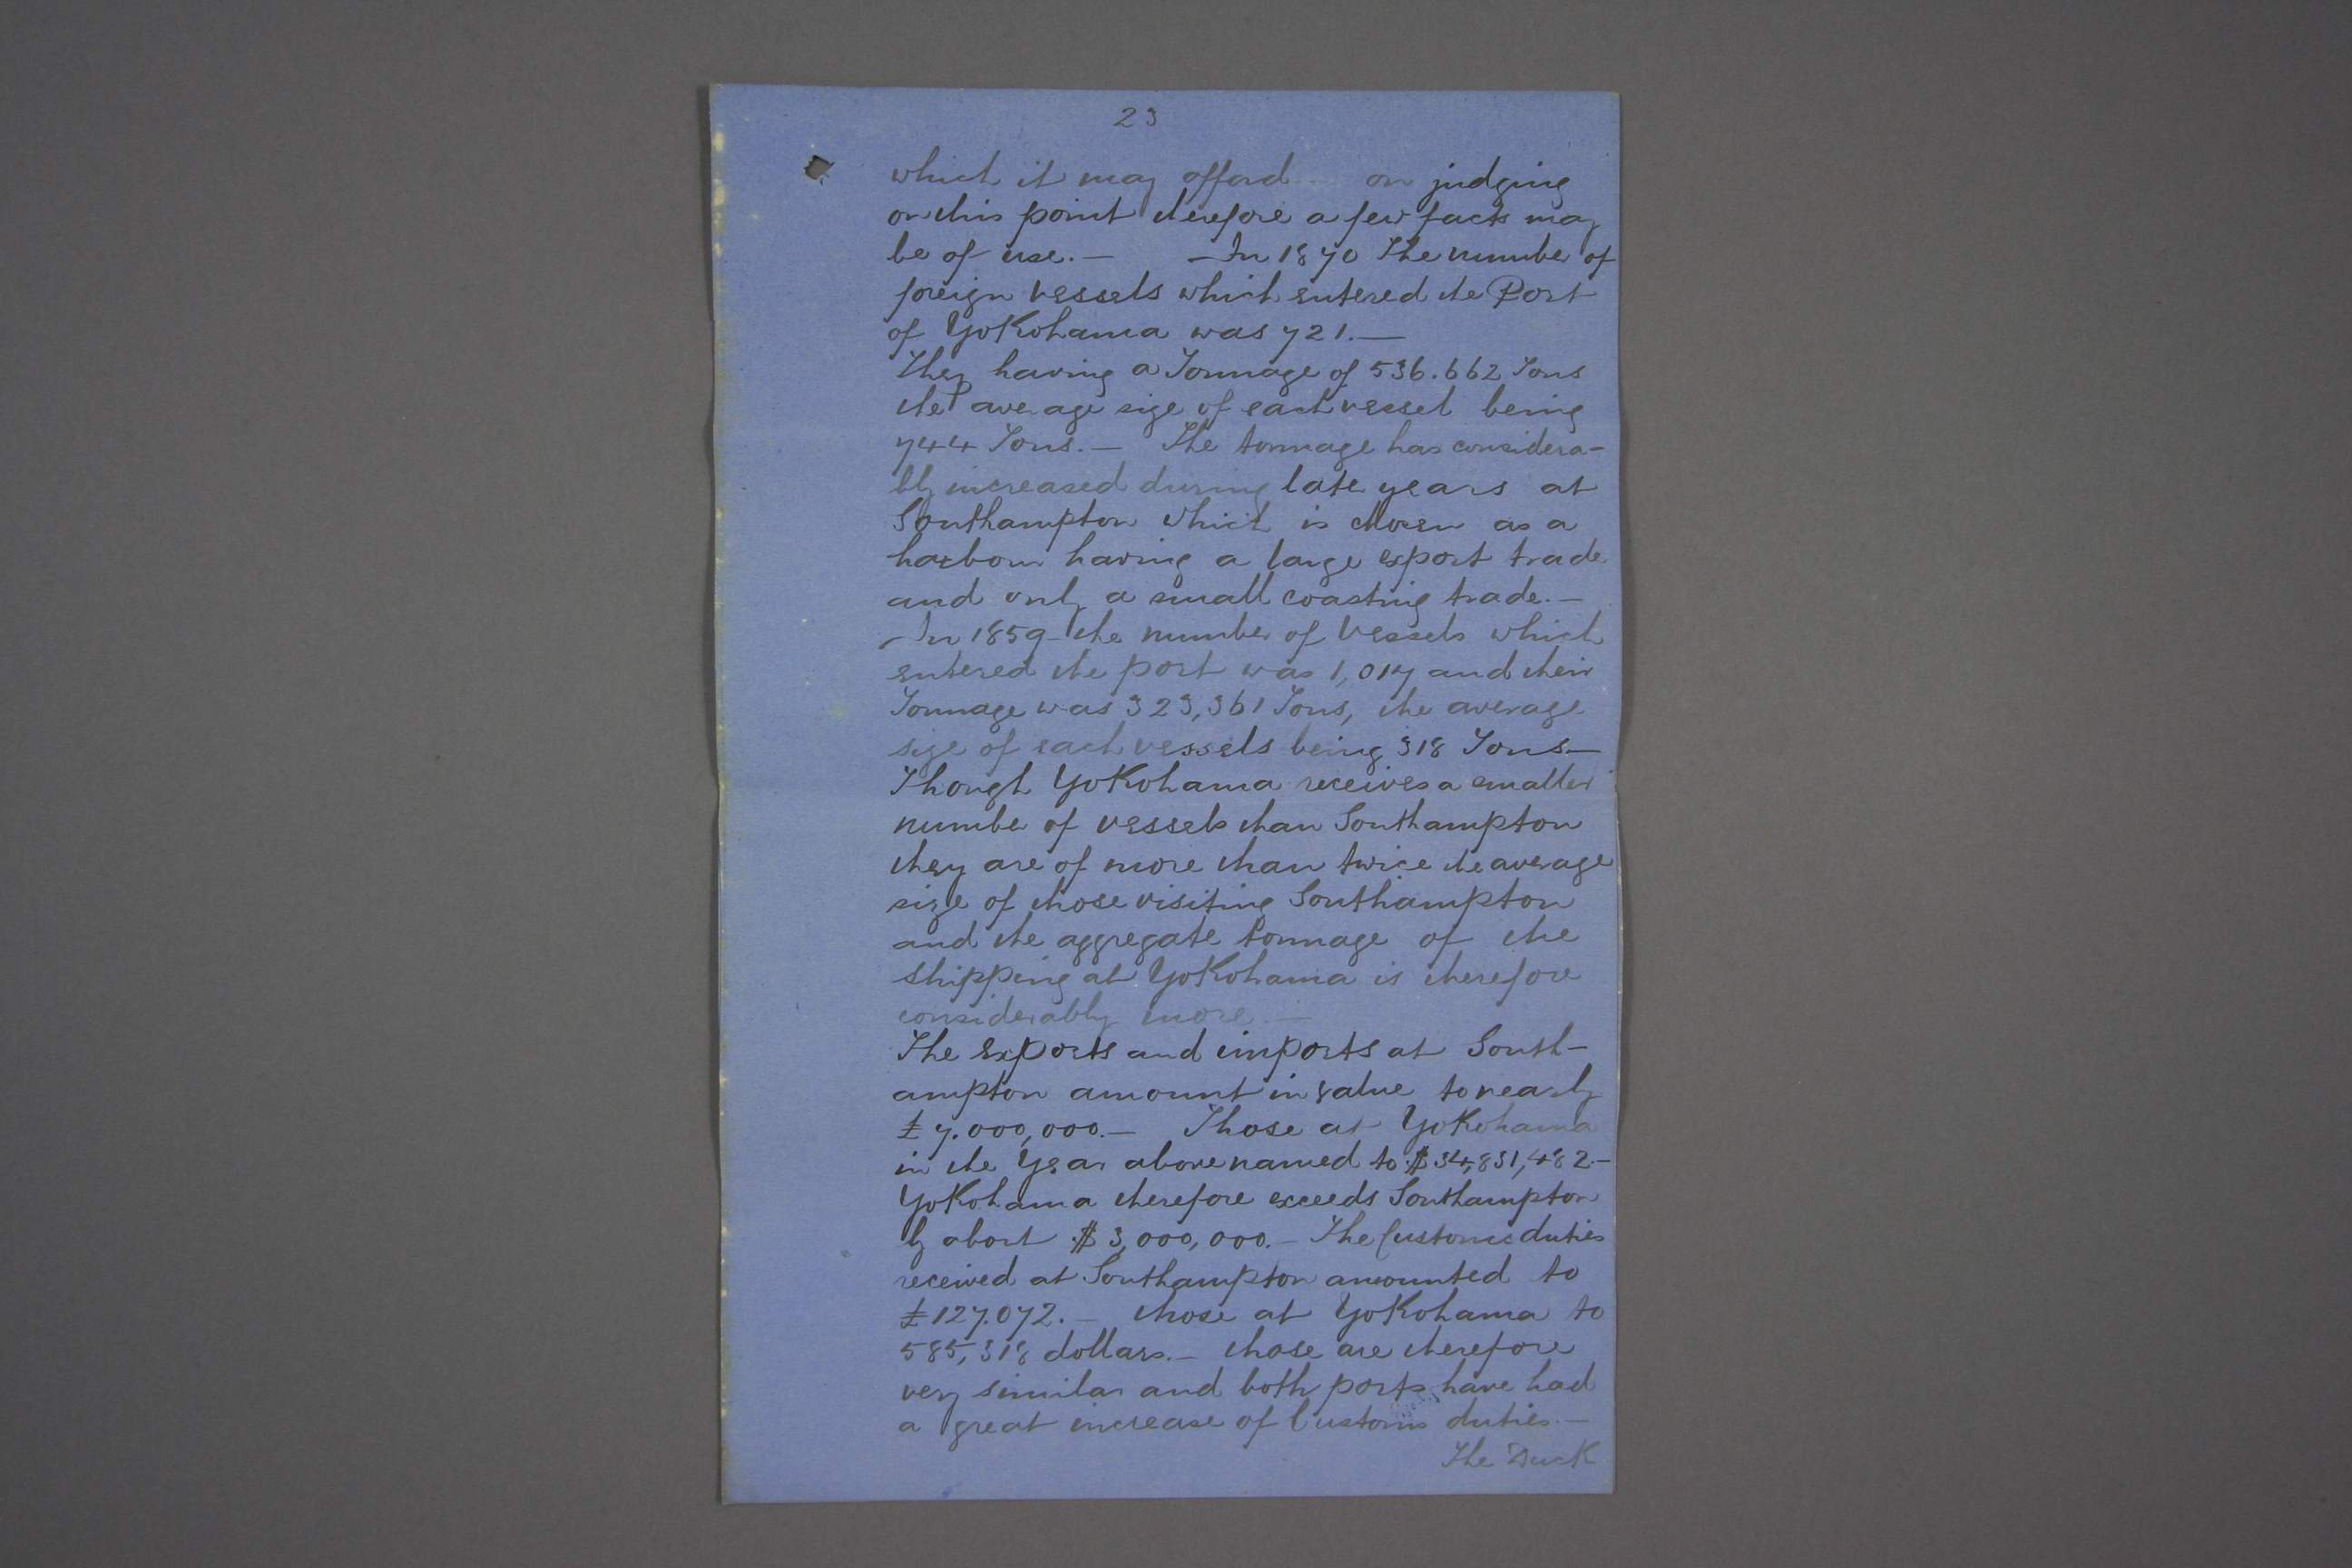 23
which it may afford — on judging
on this point therefore a few facts may
be of use. — — In 1870 The number of
foreign vessels which entered the Port
of Yokohama was 721. —
They having a Tonnage of 536.662 Tons
the average size of each vessel being
744 Tons. — The tonnage has considera-
bly increased during late years at
Southampton which is chosen as a
harbour having a large export trade
and only a small coasting trade. —
— In 1859 the number of Vessels which
entered the port was 1,017 and their
Tonnage was 323,361 Tons, the average
size of each vessels being 318 Tons —
Though Yokohama receives a smaller
number of vessels than Southampton
they are of more than twice the average
size of those visiting Southampton
and the aggregate tonnage of the
shipping at Yokohama is therefore
considerably more. —
The exports and imports at South-
ampton amount in value to nearly
£ 7.000,000. — Those at Yokohama
in the Year above named to $ 34,831,482. —
Yokohama therefore exceeds Southampton
by about $ 3,000,000. — The Customs duties
received at Southampton amounted to
£ 127.072. — those at Yokohama to
585,318 dollars. — those are therefore
very similar and both ports have had
a great increase of Customs duties. —
The Duck